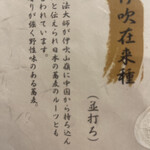 伊吹在来種
(並打ち)
法大師が伊吹山嶺に中国から持ち込ん
と伝えられ日本の蕎麦のルーツとも
われています。
りが強く野性味のある蕎麦。